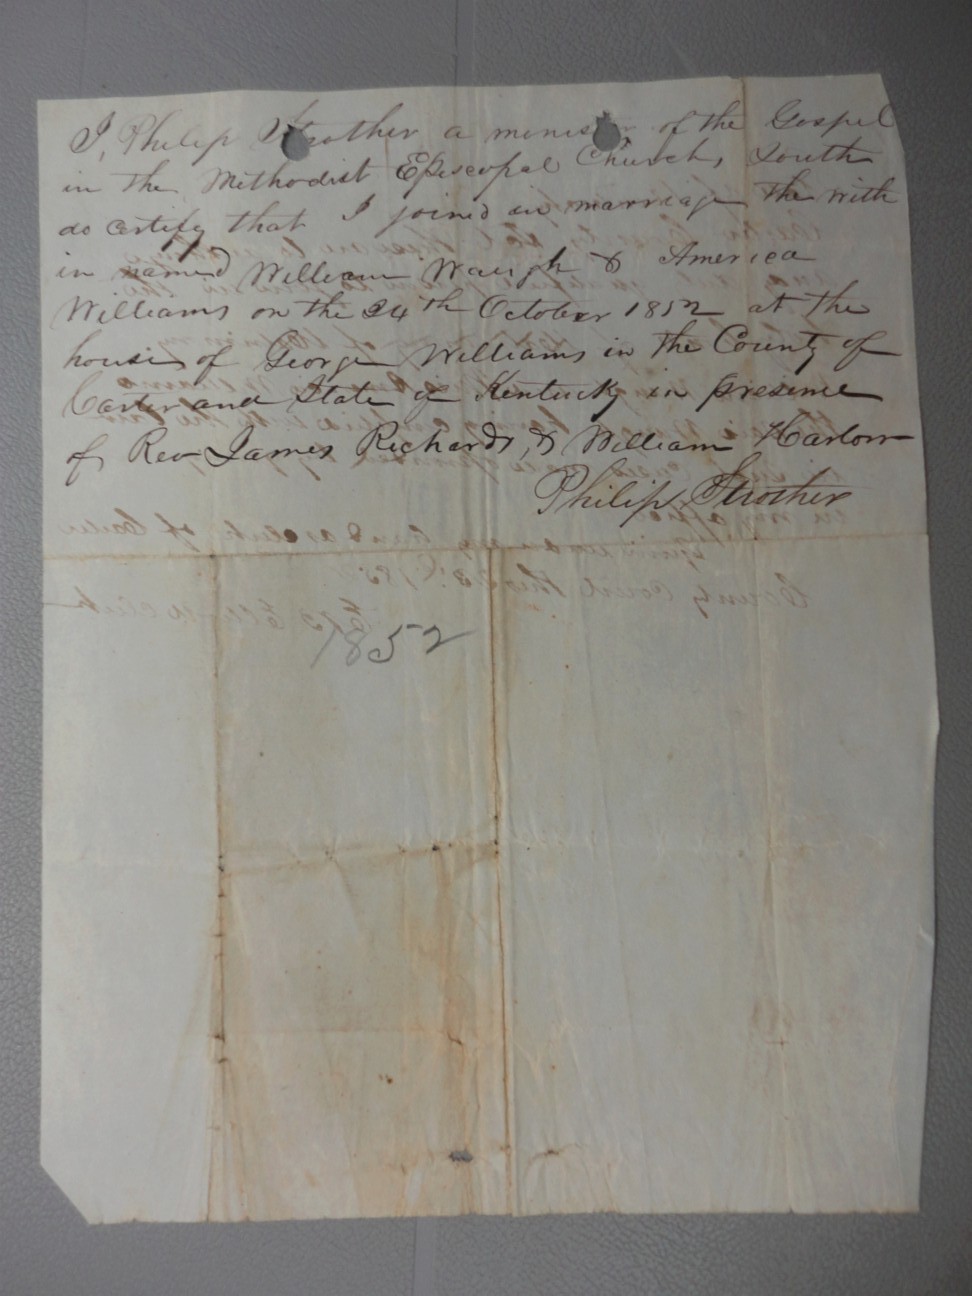 I, Philip Strother a minister of the Gospel
in the Methodist Episcopal Church, South
do certify that I joined in marriage the with
in named William Waugh & America
Williams on the 24th October 1852 at the
house of George Williams in the County of
Carter and State of Kentucky in presence
of Rev James Richards, & William Harlow
Philip Strother
1852